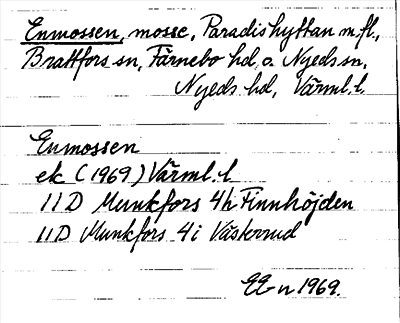 Enmossen, mosse, Paradishyttan m.fl.,
Brattfors sn, Färnebo hd, o. Nyeds sn,
Nyeds hd, Värml. l.
Enmossen
ek (1969) Värml. l
11D Munkfors 4h Finnhöjden
11D Munkfors 4i Västerrud
EE-n 1969.